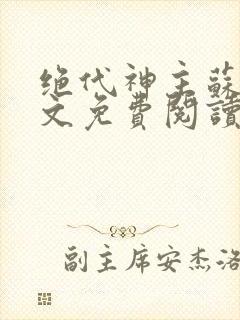 绝代神主蘇
文免費閱讀
副主席安杰洛